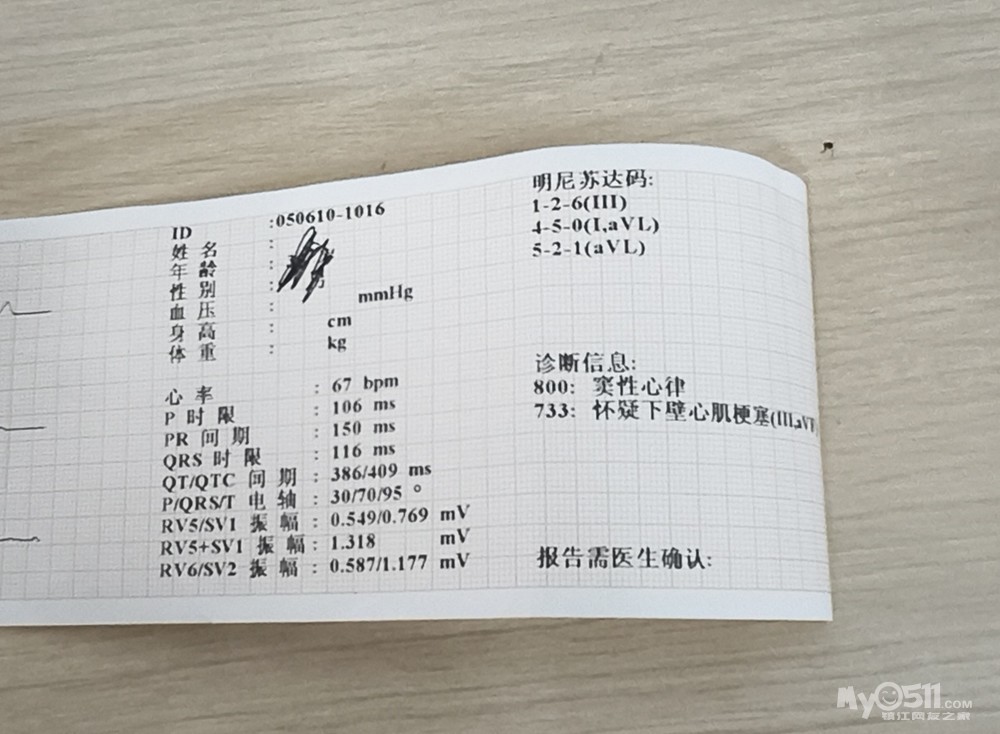 ID :050610-1016
姓 名 :
年 龄 :
性 别 :
血 压 : mmHg
身 高 : cm
体 重 : kg
心 率 : 67 bpm
P 时 限 : 106 ms
PR 间 期 : 150 ms
QRS 时 限 : 116 ms
QT/QTC 间 期 : 386/409 ms
P/QRS/T 电 轴 : 30/70/95 °
RV5/SV1 振 幅 : 0.549/0.769 mV
RV5+SV1 振 幅 : 1.318 mV
RV6/SV2 振 幅 : 0.587/1.177 mV
明尼苏达码:
1-2-6(III)
4-5-0(I,aVL)
5-2-1(aVL)
诊断信息:
800: 窦性心律
733: 怀疑下壁心肌梗塞(III,aVF
报告需医生确认:
My0511.COM
镇江网友之家